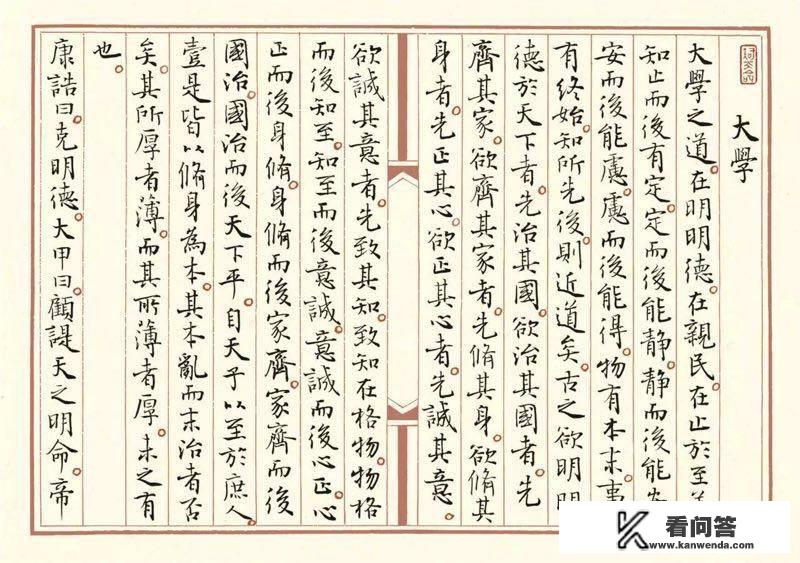 大學
大學之道。在明明德。在親民。在止於至
知止而後有定。定而後能靜。靜而後能安
安而後能慮。慮而後能得。物有本末。事
有終始。知所先後。則近道矣。古之欲明明
德於天下者。先治其國。欲治其國者。先
齊其家。欲齊其家者。先脩其身。欲脩其
身者。先正其心。欲正其心者。先誠其意。
欲誠其意者。先致其知。致知在格物。物格
而後知至。知至而後意誠。意誠而後心正。心
正而後身脩。身脩而後家齊。家齊而後
國治。國治而後天下平。自天子以至於庶人。
壹是皆以脩身為本。其本亂而末治者否
矣。其所厚者薄。而其所薄者厚。未之有
也。
康誥曰。克明德。大甲曰。顧諟天之明命。帝
看问答
www.kanwenda.com